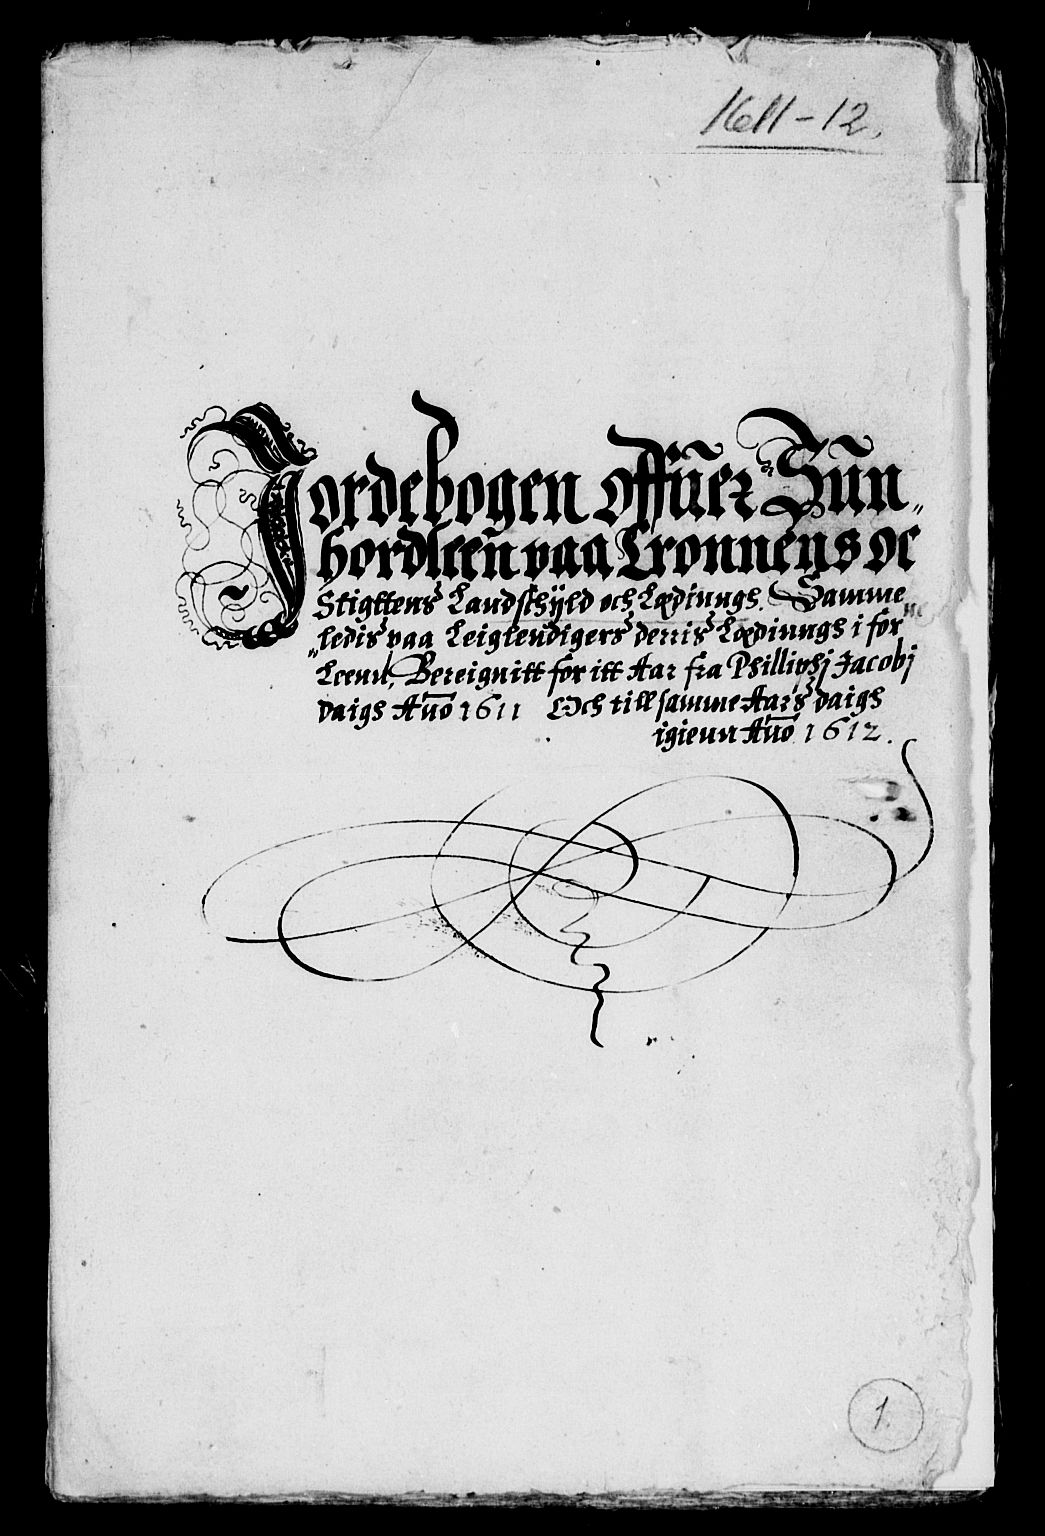 1611-12.
Jordebogen offuer Sün„
hordleen paa Cronnens oc
Stigttens Landschyld och Lædinngs. Samme
„ledis paa Leiglendigers derris Lædinngs i for
Leenn, Bereignitt for itt Aar fra Philliphj Jacobj
daigs Añno 1611 Och till samme Aars daigs
igienn Añno 1612.
1.